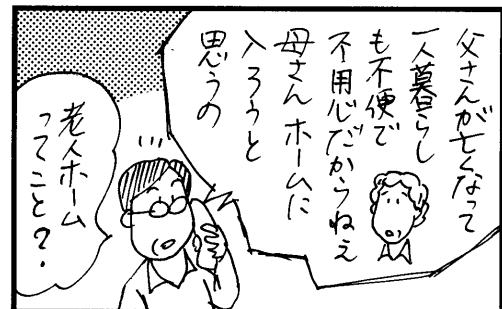 父さんが亡くなって
一人暮らし
も不便で
不用心だからねえ
母さんホームに
入ろうと
思うの
老人ホーム
ってこと?